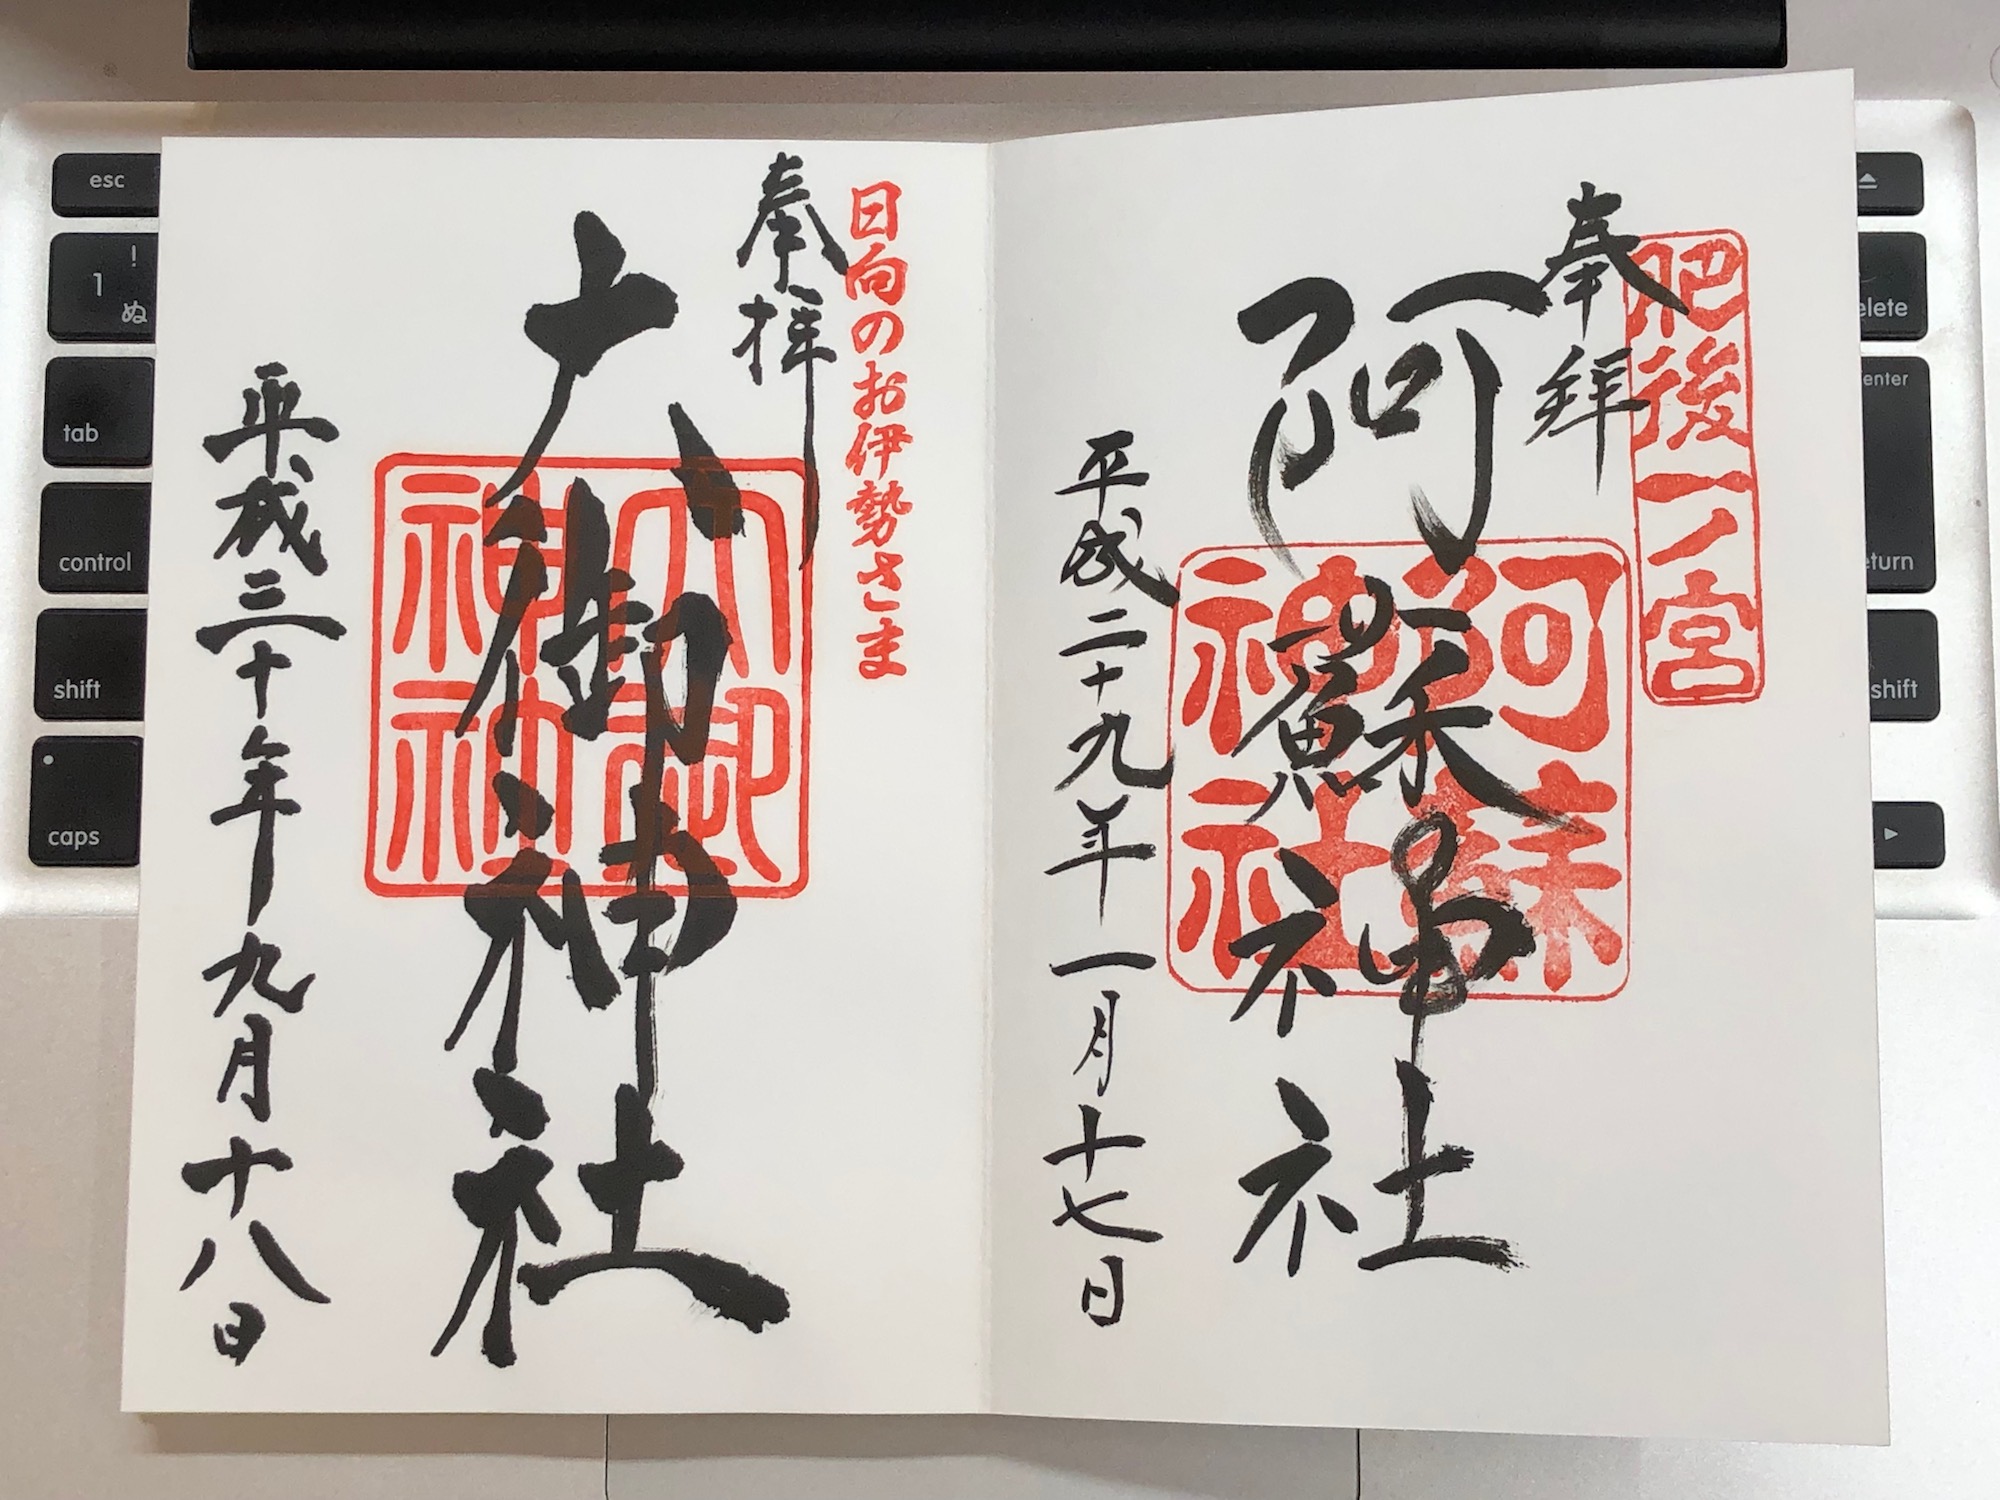 肥後一ノ宮
奉拝
阿蘇神社
阿蘇
神社
平成二十九年一月十七日
日向のお伊勢さま
奉拝
大御神社
大御
神社
平成三十年九月十八日
esc
!
1 ぬ
tab
control
shift
caps
elete
enter
eturn
shift